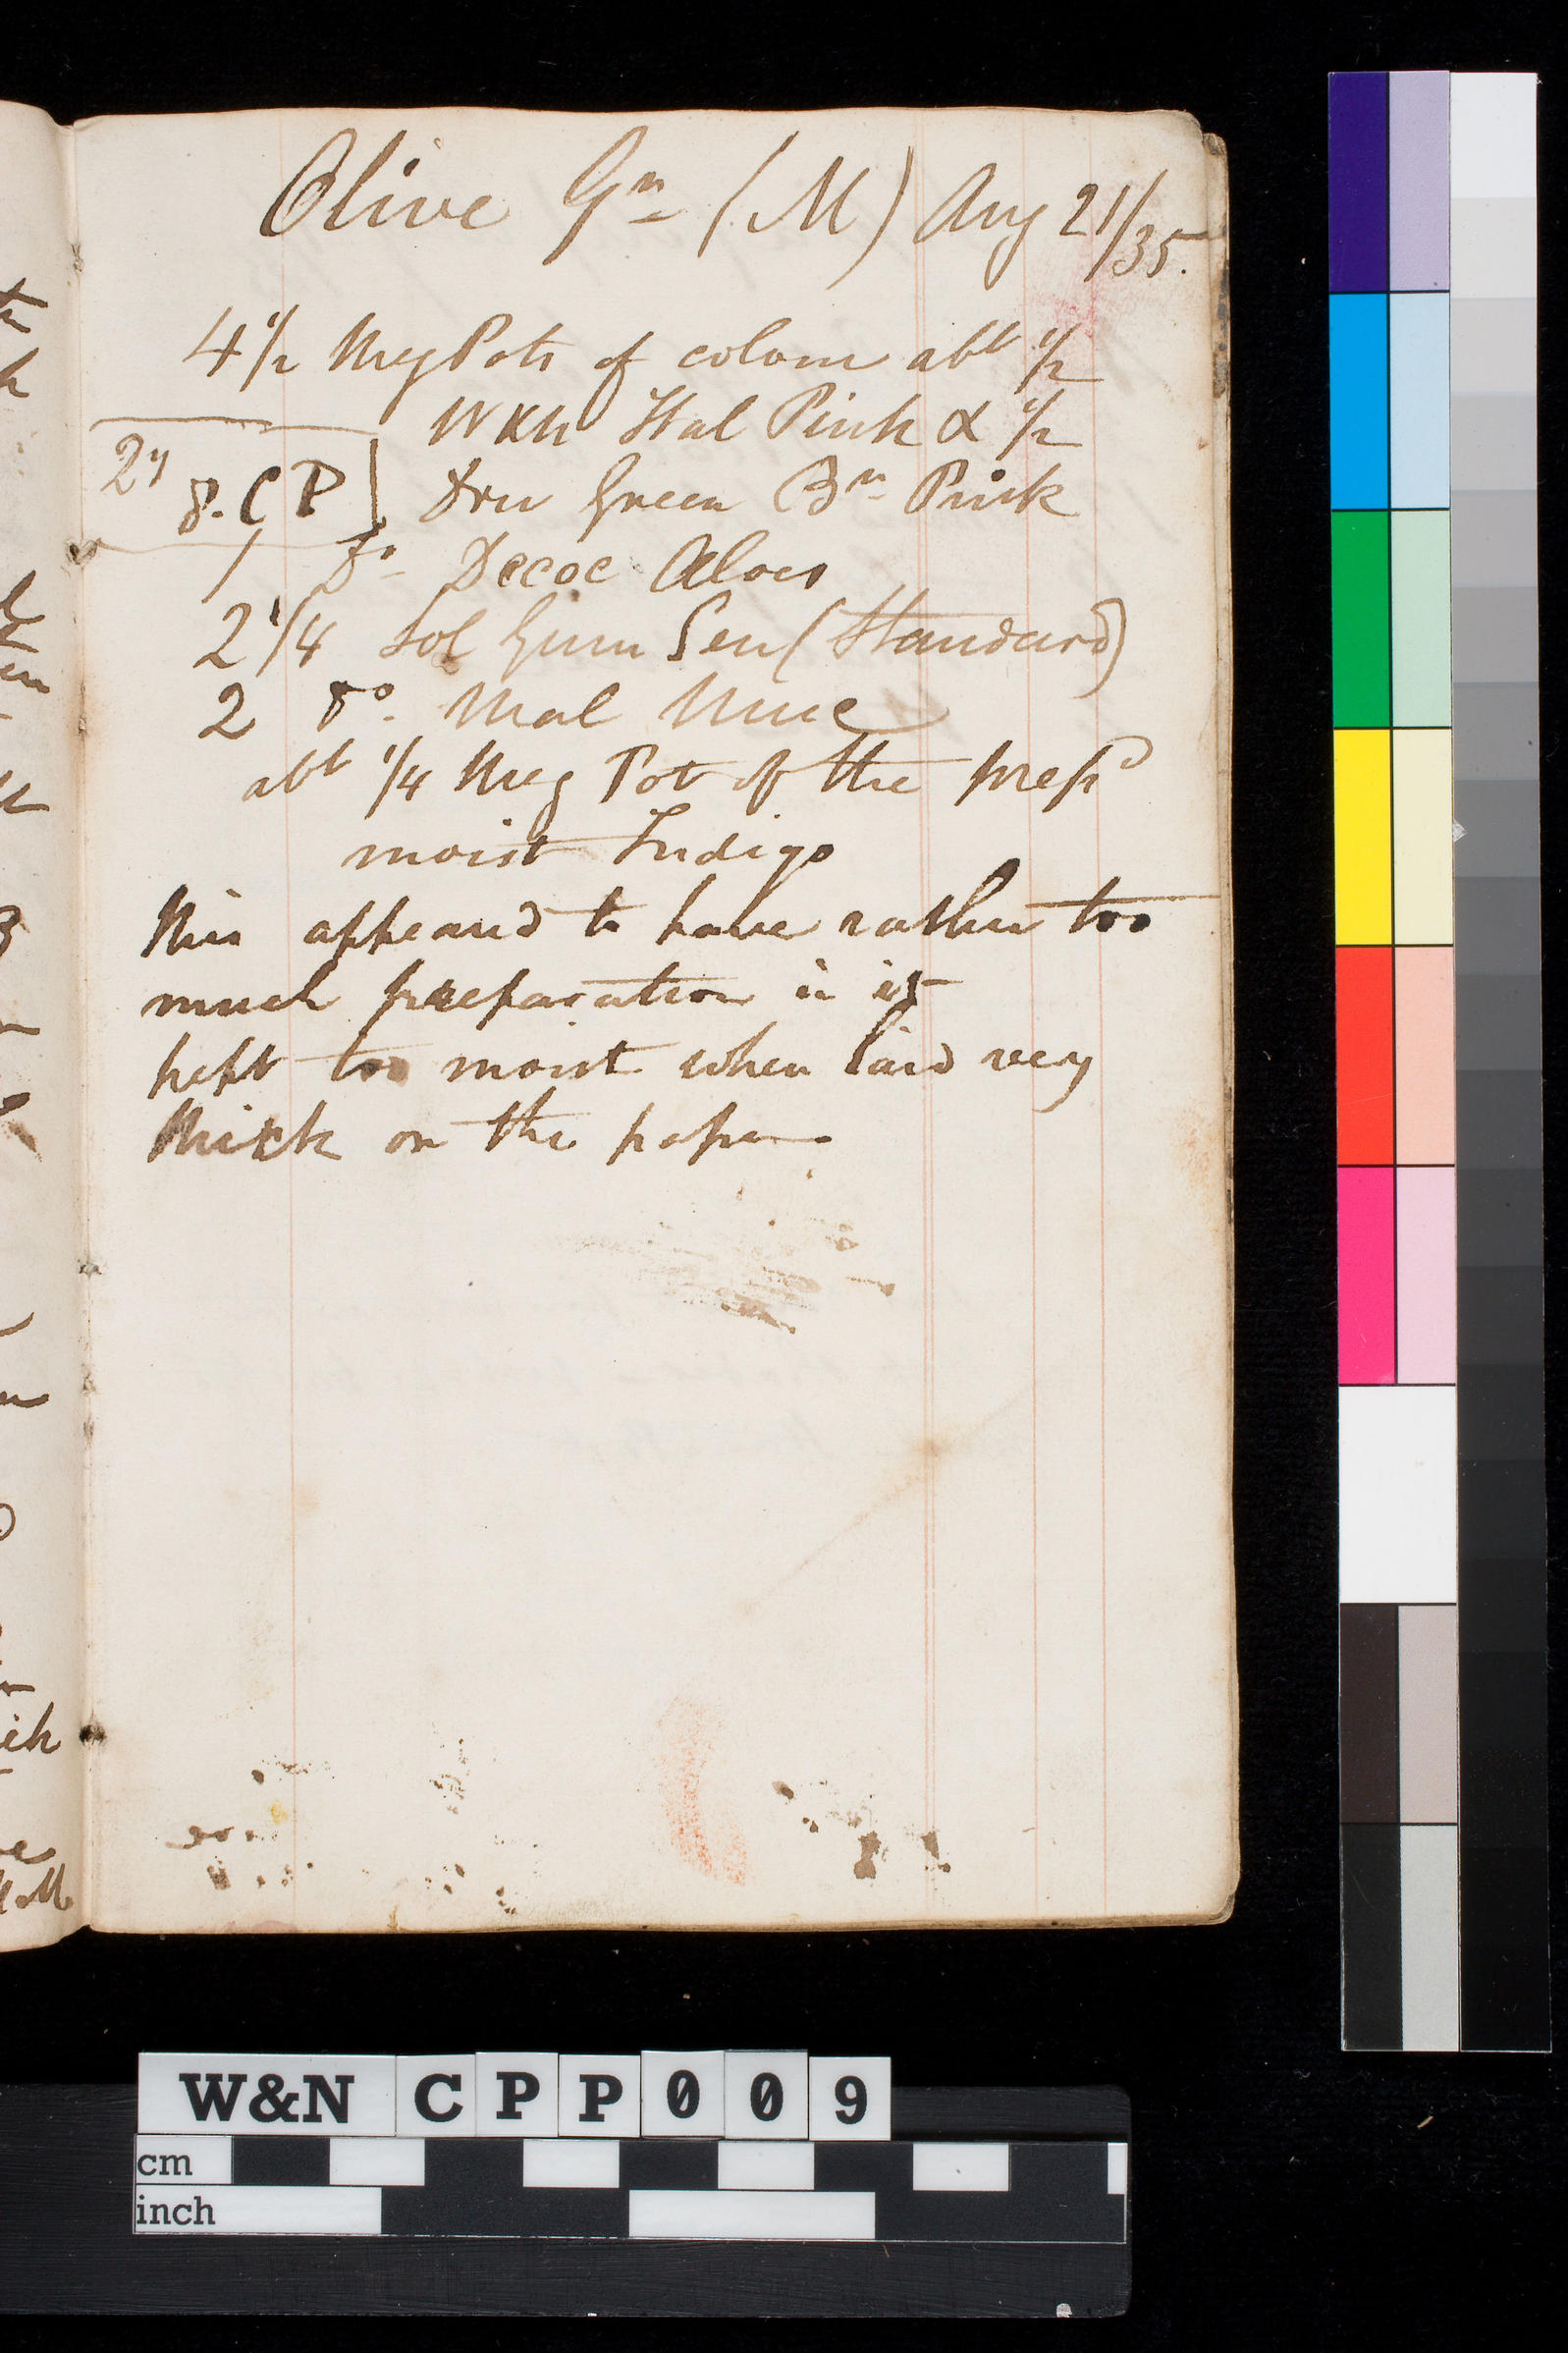 Olive Gn (M) Aug 21/35.
4 1/2 Meg Pots of colour abt 1/2
Wkh Ital Pink & 1/2
2y 8.CP] Dru Green Bn Pink
1 Do Decoc Aloes
2 1/4 Sol Gum Sen (Standard)
2 Do. Mal Muc
abt 1/4 Meg Pot of the prepd
moist Indigo
This appeard to have rather too
much preparation in it
kept too moist when laid very
thick on the paper
W&N CPP009
cm
inch